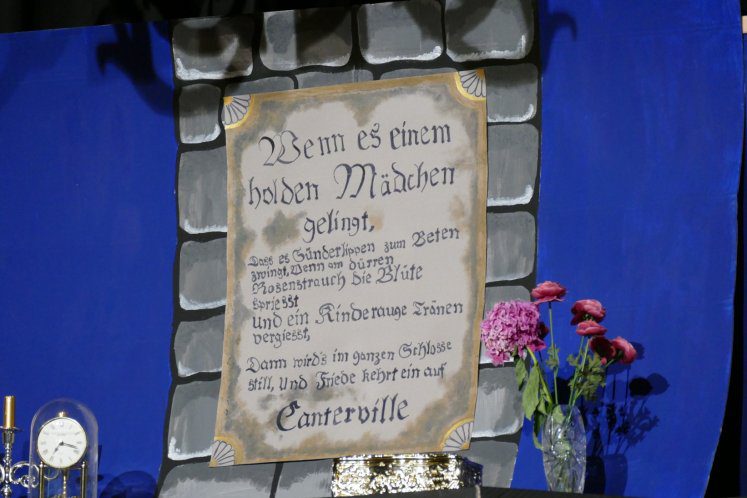 Wenn es einem
holden Mädchen
gelingt,
Dass es Sünderlippen zum Beten
zwingt, Wenn am dürren
Rosenstrauch die Blüte
spriesst
und ein Kinderauge Tränen
vergiesst,
Dann wird's im ganzen Schlosse
still, und Friede kehrt ein auf
Canterville